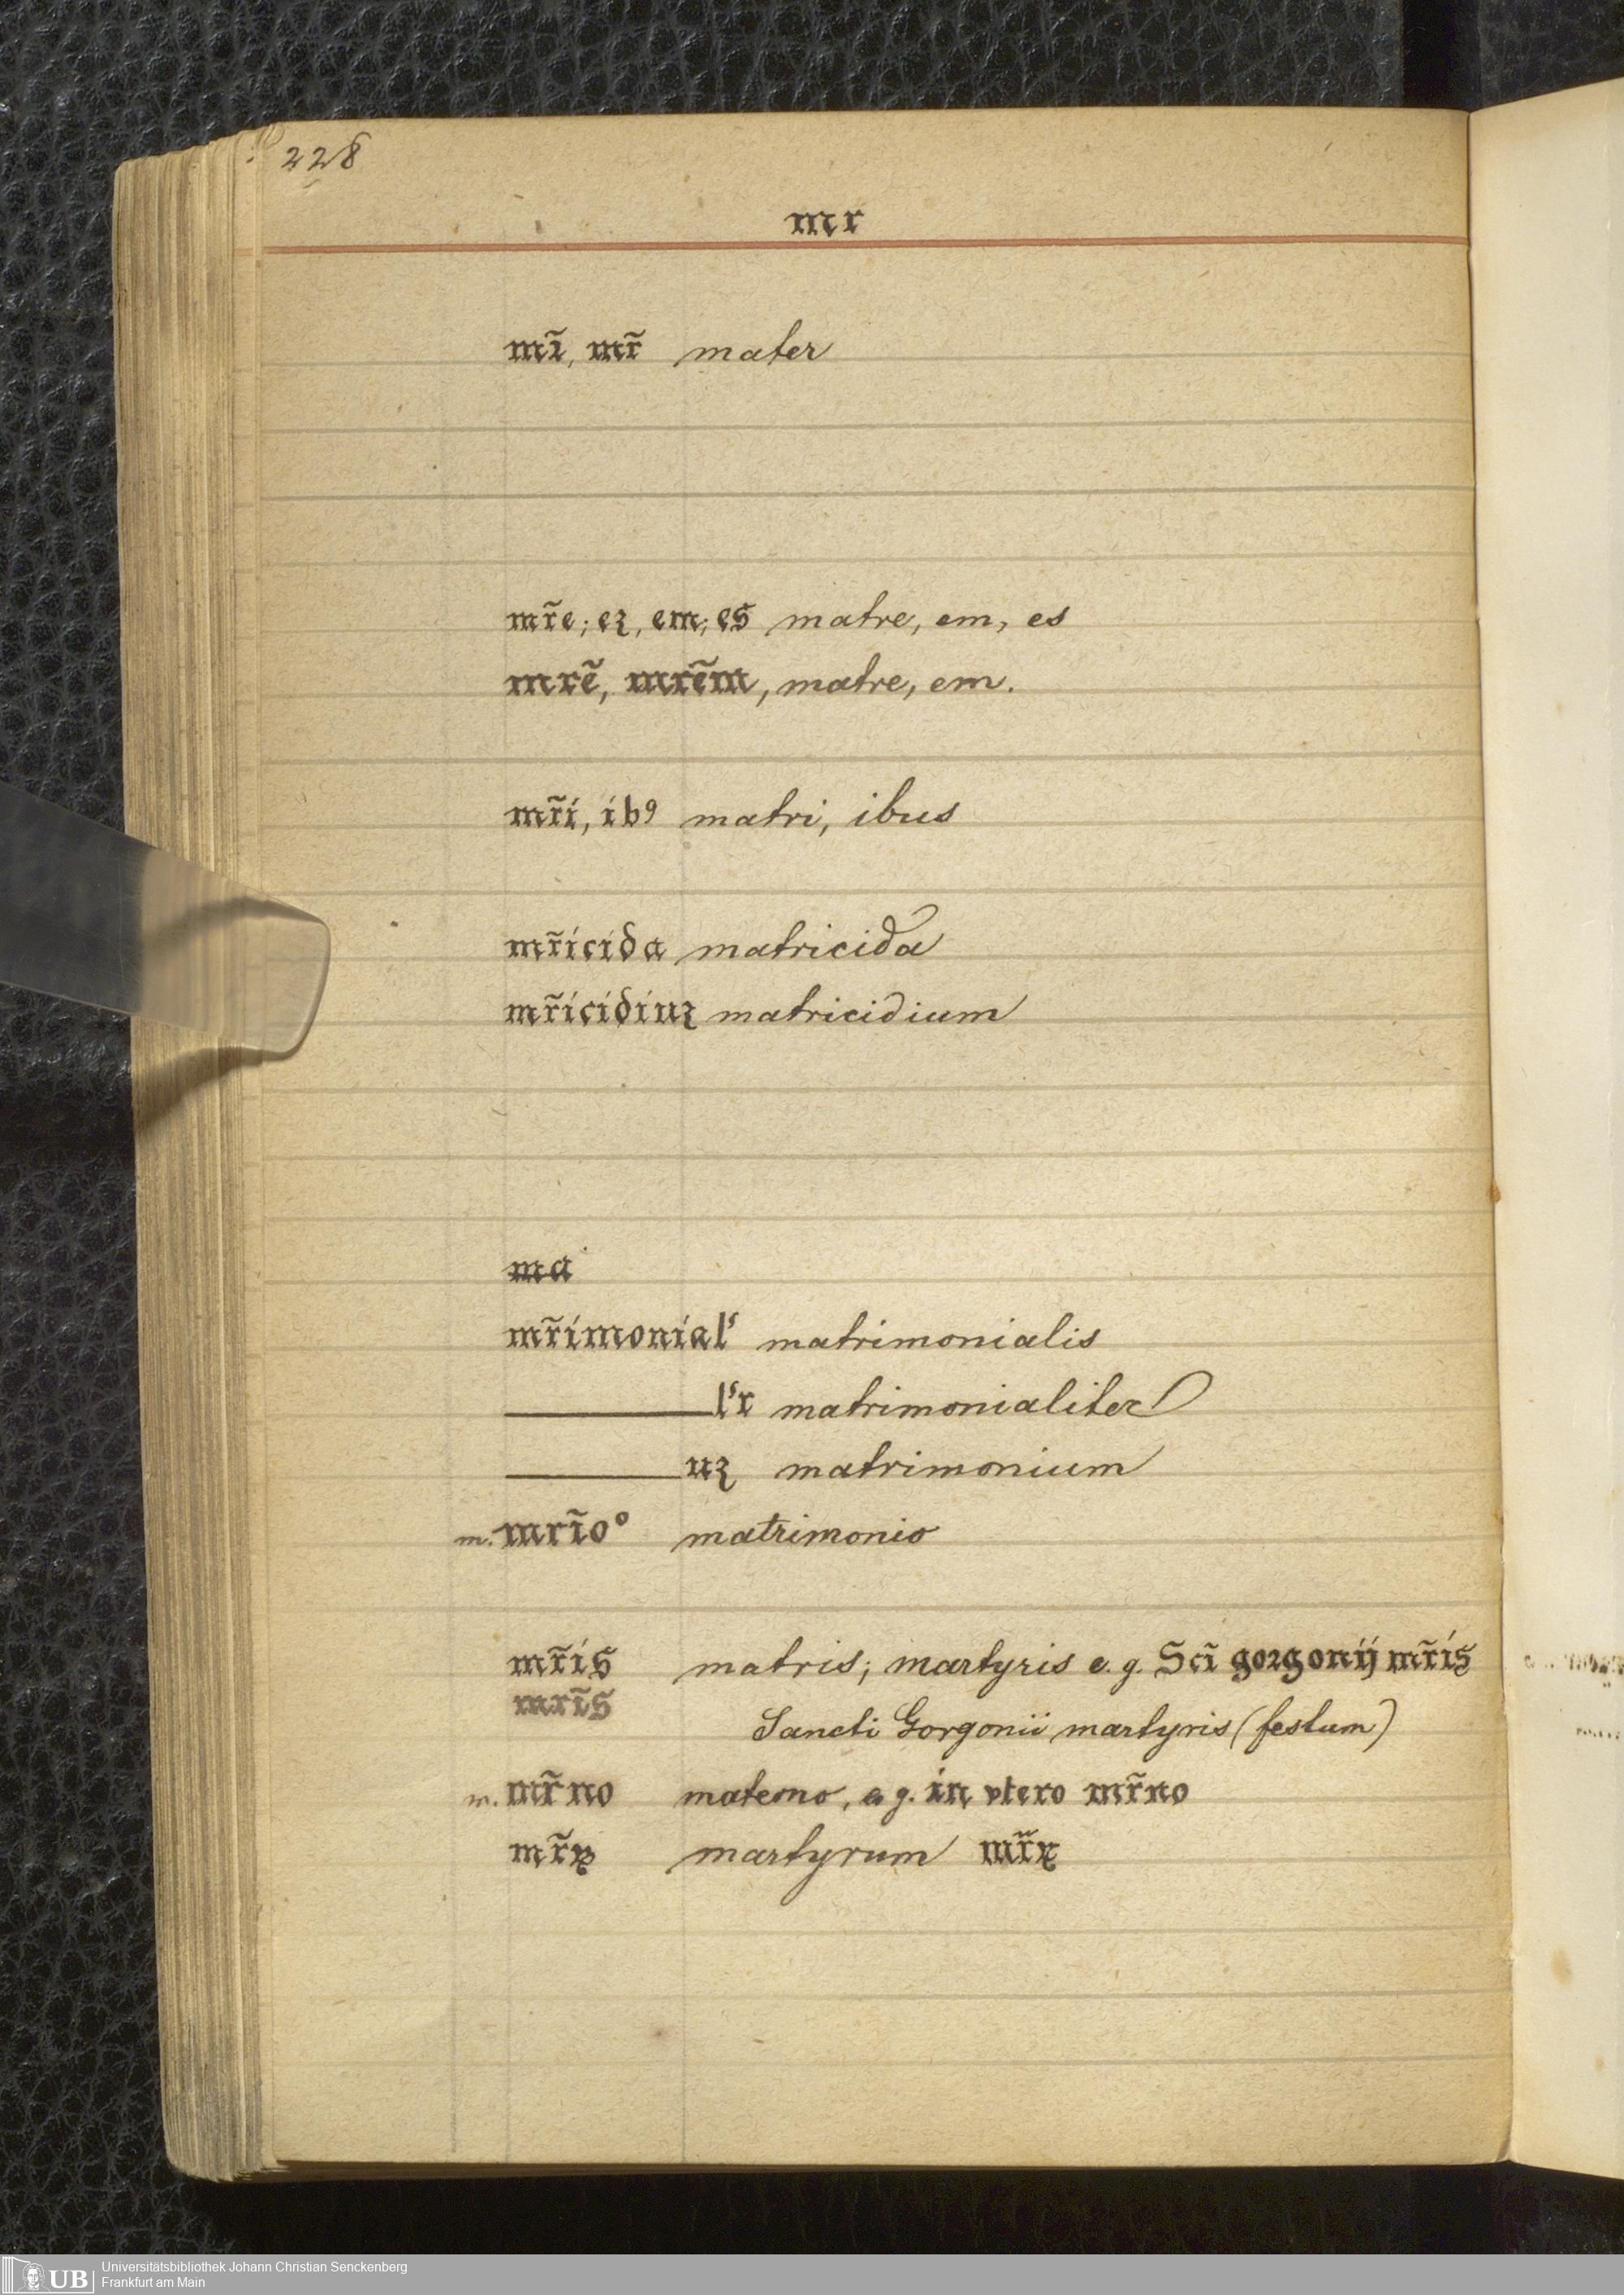 228
mr
mꝛ̃, mr̃ mater
mr̃e; eꝫ, em; es matre, em, es
mrẽ, mrẽm, matre, em.
mr̃i, ibꝰ matri, ibus
mr̃icida matricida
mr̃icidiuꝫ matricidium
ma
mr̃imonial' matrimonialis
l'r matrimonialiter
uꝫ matrimonium
m. mrĩo° matrimonio
mr̃is matris; martyris e. g. Scĩ goꝛgonij mr̃is
mrĩs Sancti Gorgonii martyris (festum)
m. mr̃no materno, e g. in vtero mr̃no
mr̃ꝝ martyrum mr̃ꝝ
UB Universitätsbibliothek Johann Christian Senckenberg
Frankfurt am Main